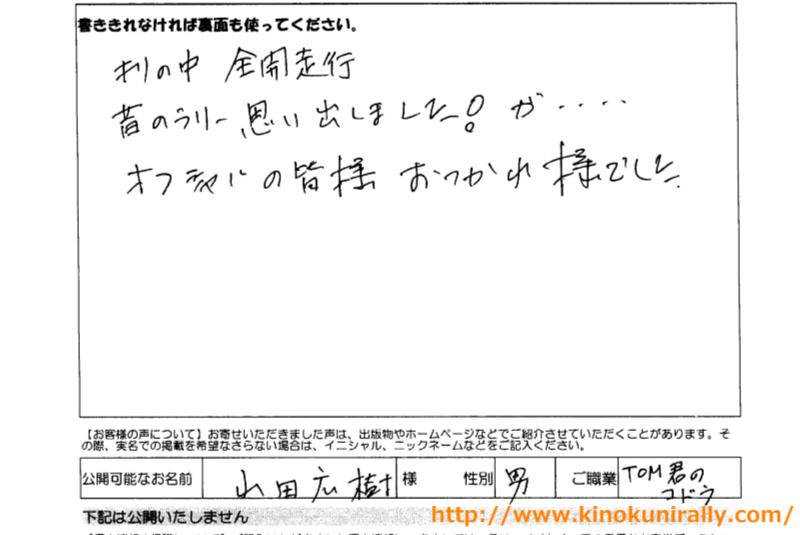 書ききれなければ裏面も使ってください。
キリの中 全開走行
昔のラリー思い出しました! が・・・・
オフシャルの皆様 おつかれ様でした
【お客様の声について】お寄せいただきました声は、出版物やホームページなどでご紹介させていただくことがあります。そ
の際、実名での掲載を希望なさらない場合は、イニシャル、ニックネームなどをご記入ください。
公開可能なお名前 山田広樹 様 性別 男 ご職業 TOM君の
コドラ
下記は公開いたしません
http://www.kinokunirally.com/